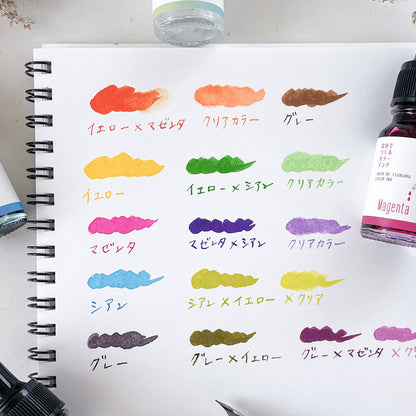 イエロー×マゼンタ
クリアカラー
グレー
イエロー
イエロー×シアン
クリアカラー
マゼンタ
マゼンタ×シアン
クリアカラー
シアン
シアン×イエロー
×クリア
グレー
グレー×イエロー
グレー×マゼンタ
×ク
自分で
つくる
カラー
インク
JIBUN DE TSUKURU
COLOR INK
Magenta